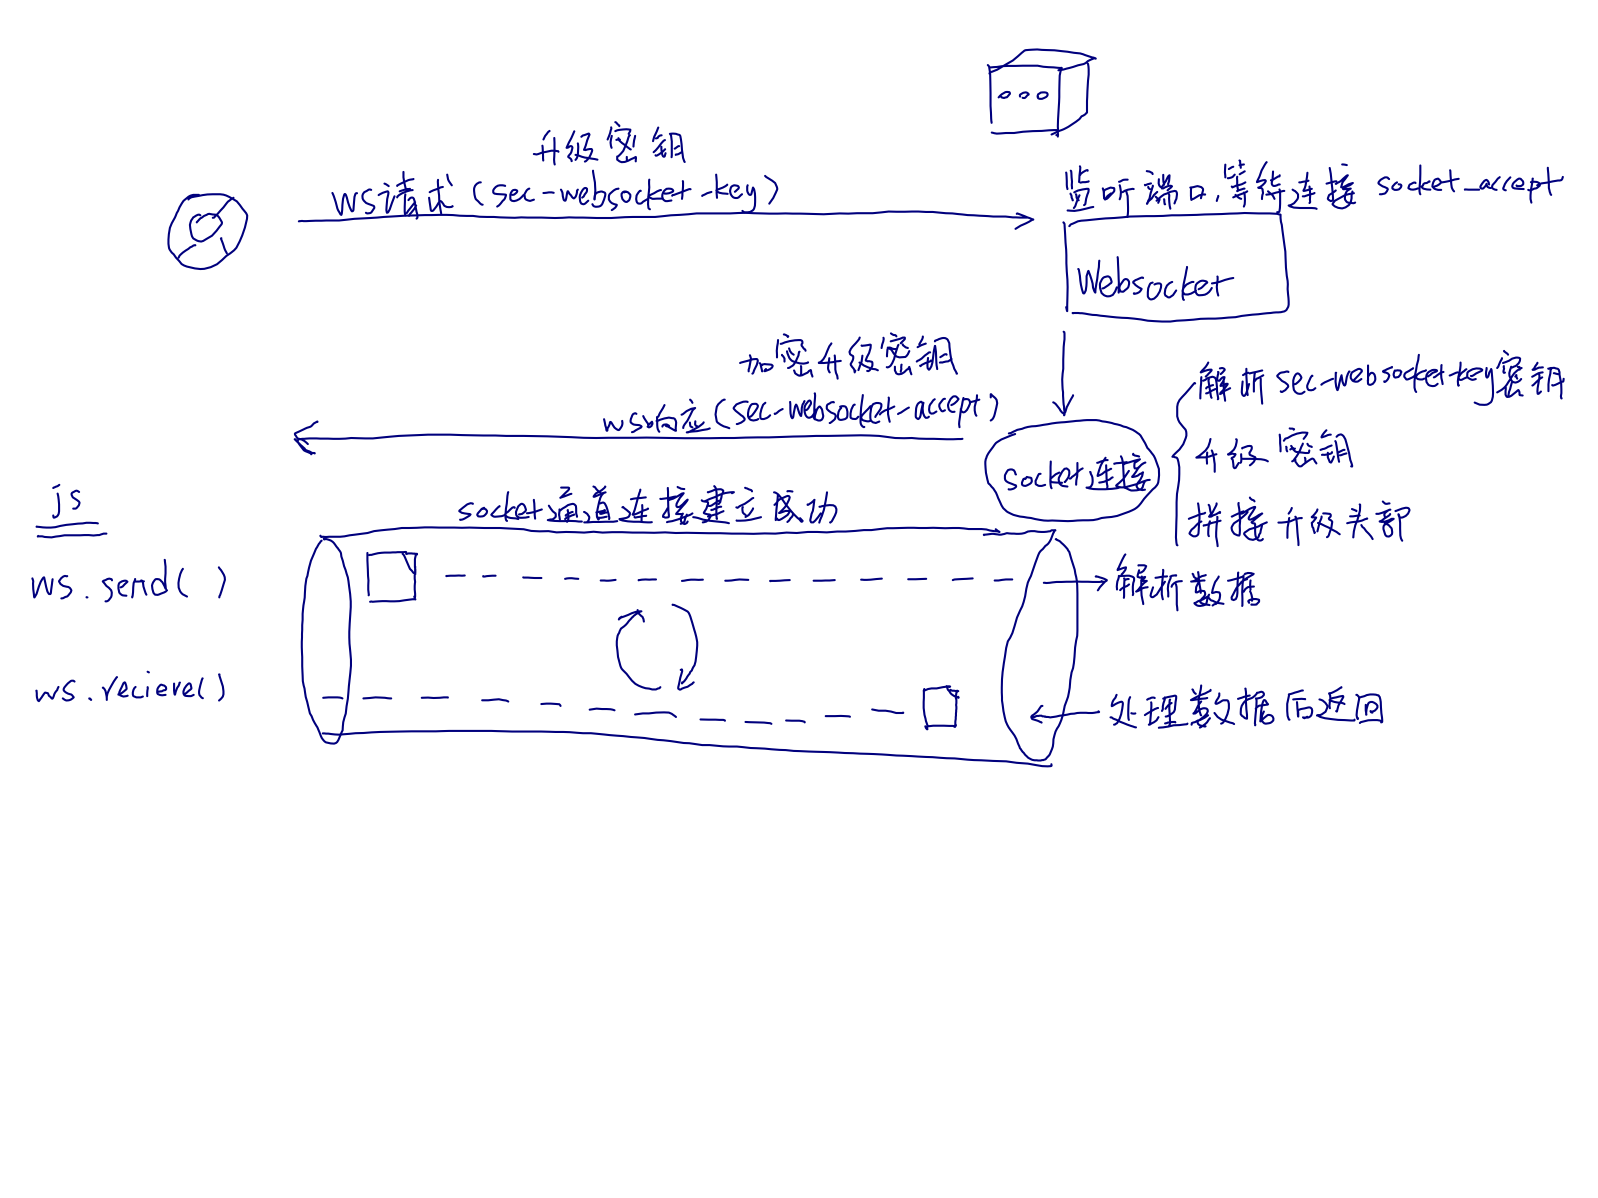 升级密钥
ws请求(sec-websocket-key)
监听端口,等待连接 socket_accept
Websocket
加密升级密钥
ws响应(sec-websocket-accept)
socket连接
解析sec-websocket-key密钥
升级密钥
拼接升级头部
js
socket通道连接建立成功
ws.send( )
解析数据
ws.recieve()
处理数据后返回